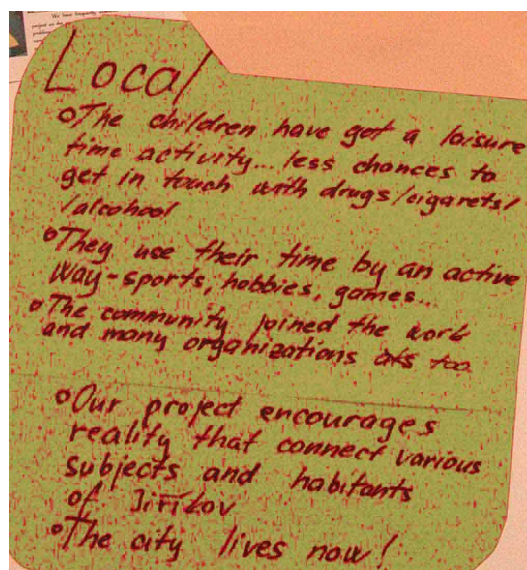 Local
The children have got a loisure
time activity... less chances to
get in touch with drugs/cigarets/
/alcohool
They use their time by an active
way-sports, hobbies, games...
The community joined the work
and many organizations too
Our project encourages
reality that connect various
subjects and habitants
of Jiříkov
The city lives now!